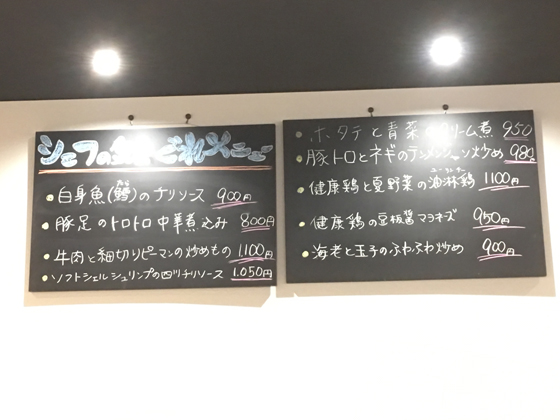 シェフの
白身魚(鱈)のチリソース 900円
たら
豚足のトロトロ中華煮込み 800円
牛肉と細切りピーマンの炒めもの 1100円
ソフトシェルシュリンプの四川チリソース 1.050円
ホタテと青菜クリーム煮 950
豚トロとネギのテンメンジャン炒め 980
ユーリンチー
健康鶏と夏野菜の油淋鶏 1100円
健康鶏の豆板醤マヨネーズ 950円
海老と玉子のふわふわ炒め 900円